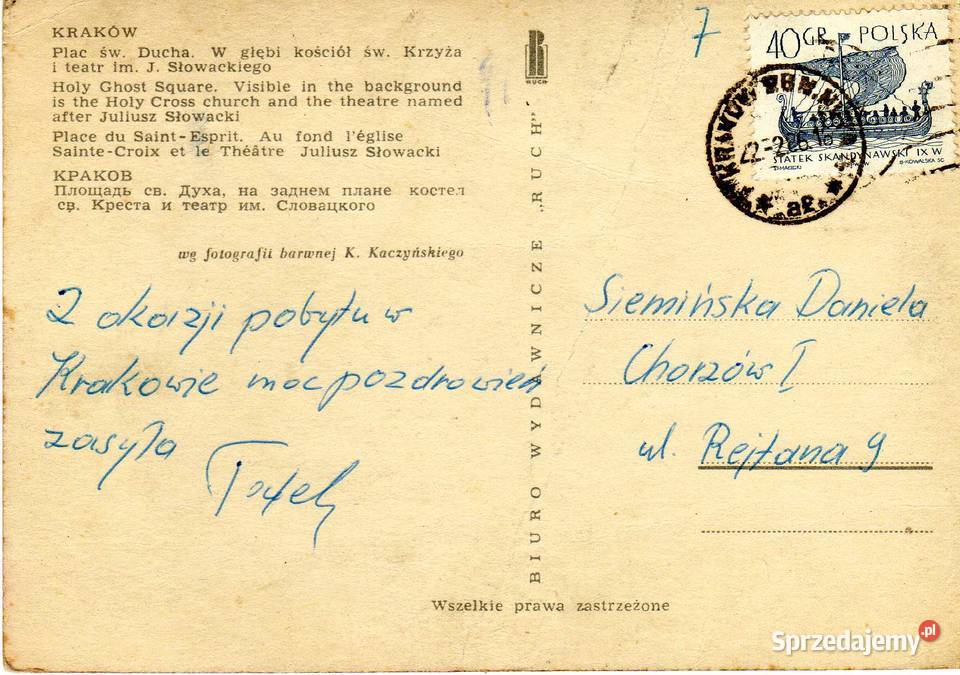 KRAKÓW
Plac św. Ducha. W głębi kościół św. Krzyża
i teatr im. J. Słowackiego
Holy Ghost Square. Visible in the background
is the Holy Cross church and the theatre named
after Juliusz Słowacki
Place du Saint-Esprit. Au fond l'église
Sainte-Croix et le Théâtre Juliusz Słowacki
КРАКОВ
Площадь св. Духа, на заднем плане костел
св. Креста и театр им. Словацкого
wg fotografii barwnej K. Kaczyńskiego
Z okazji pobytu w
Krakowie moc pozdrowień
zasyła
RUCH
BIURO WYDAWNICZE „RUCH"
7
40 GR POLSKA
STATEK SKANDYNAWSKI IX W
Siemińska Daniela
Chorzów I
ul. Rejtana 9
Wszelkie prawa zastrzeżone
Sprzedajemy.pl